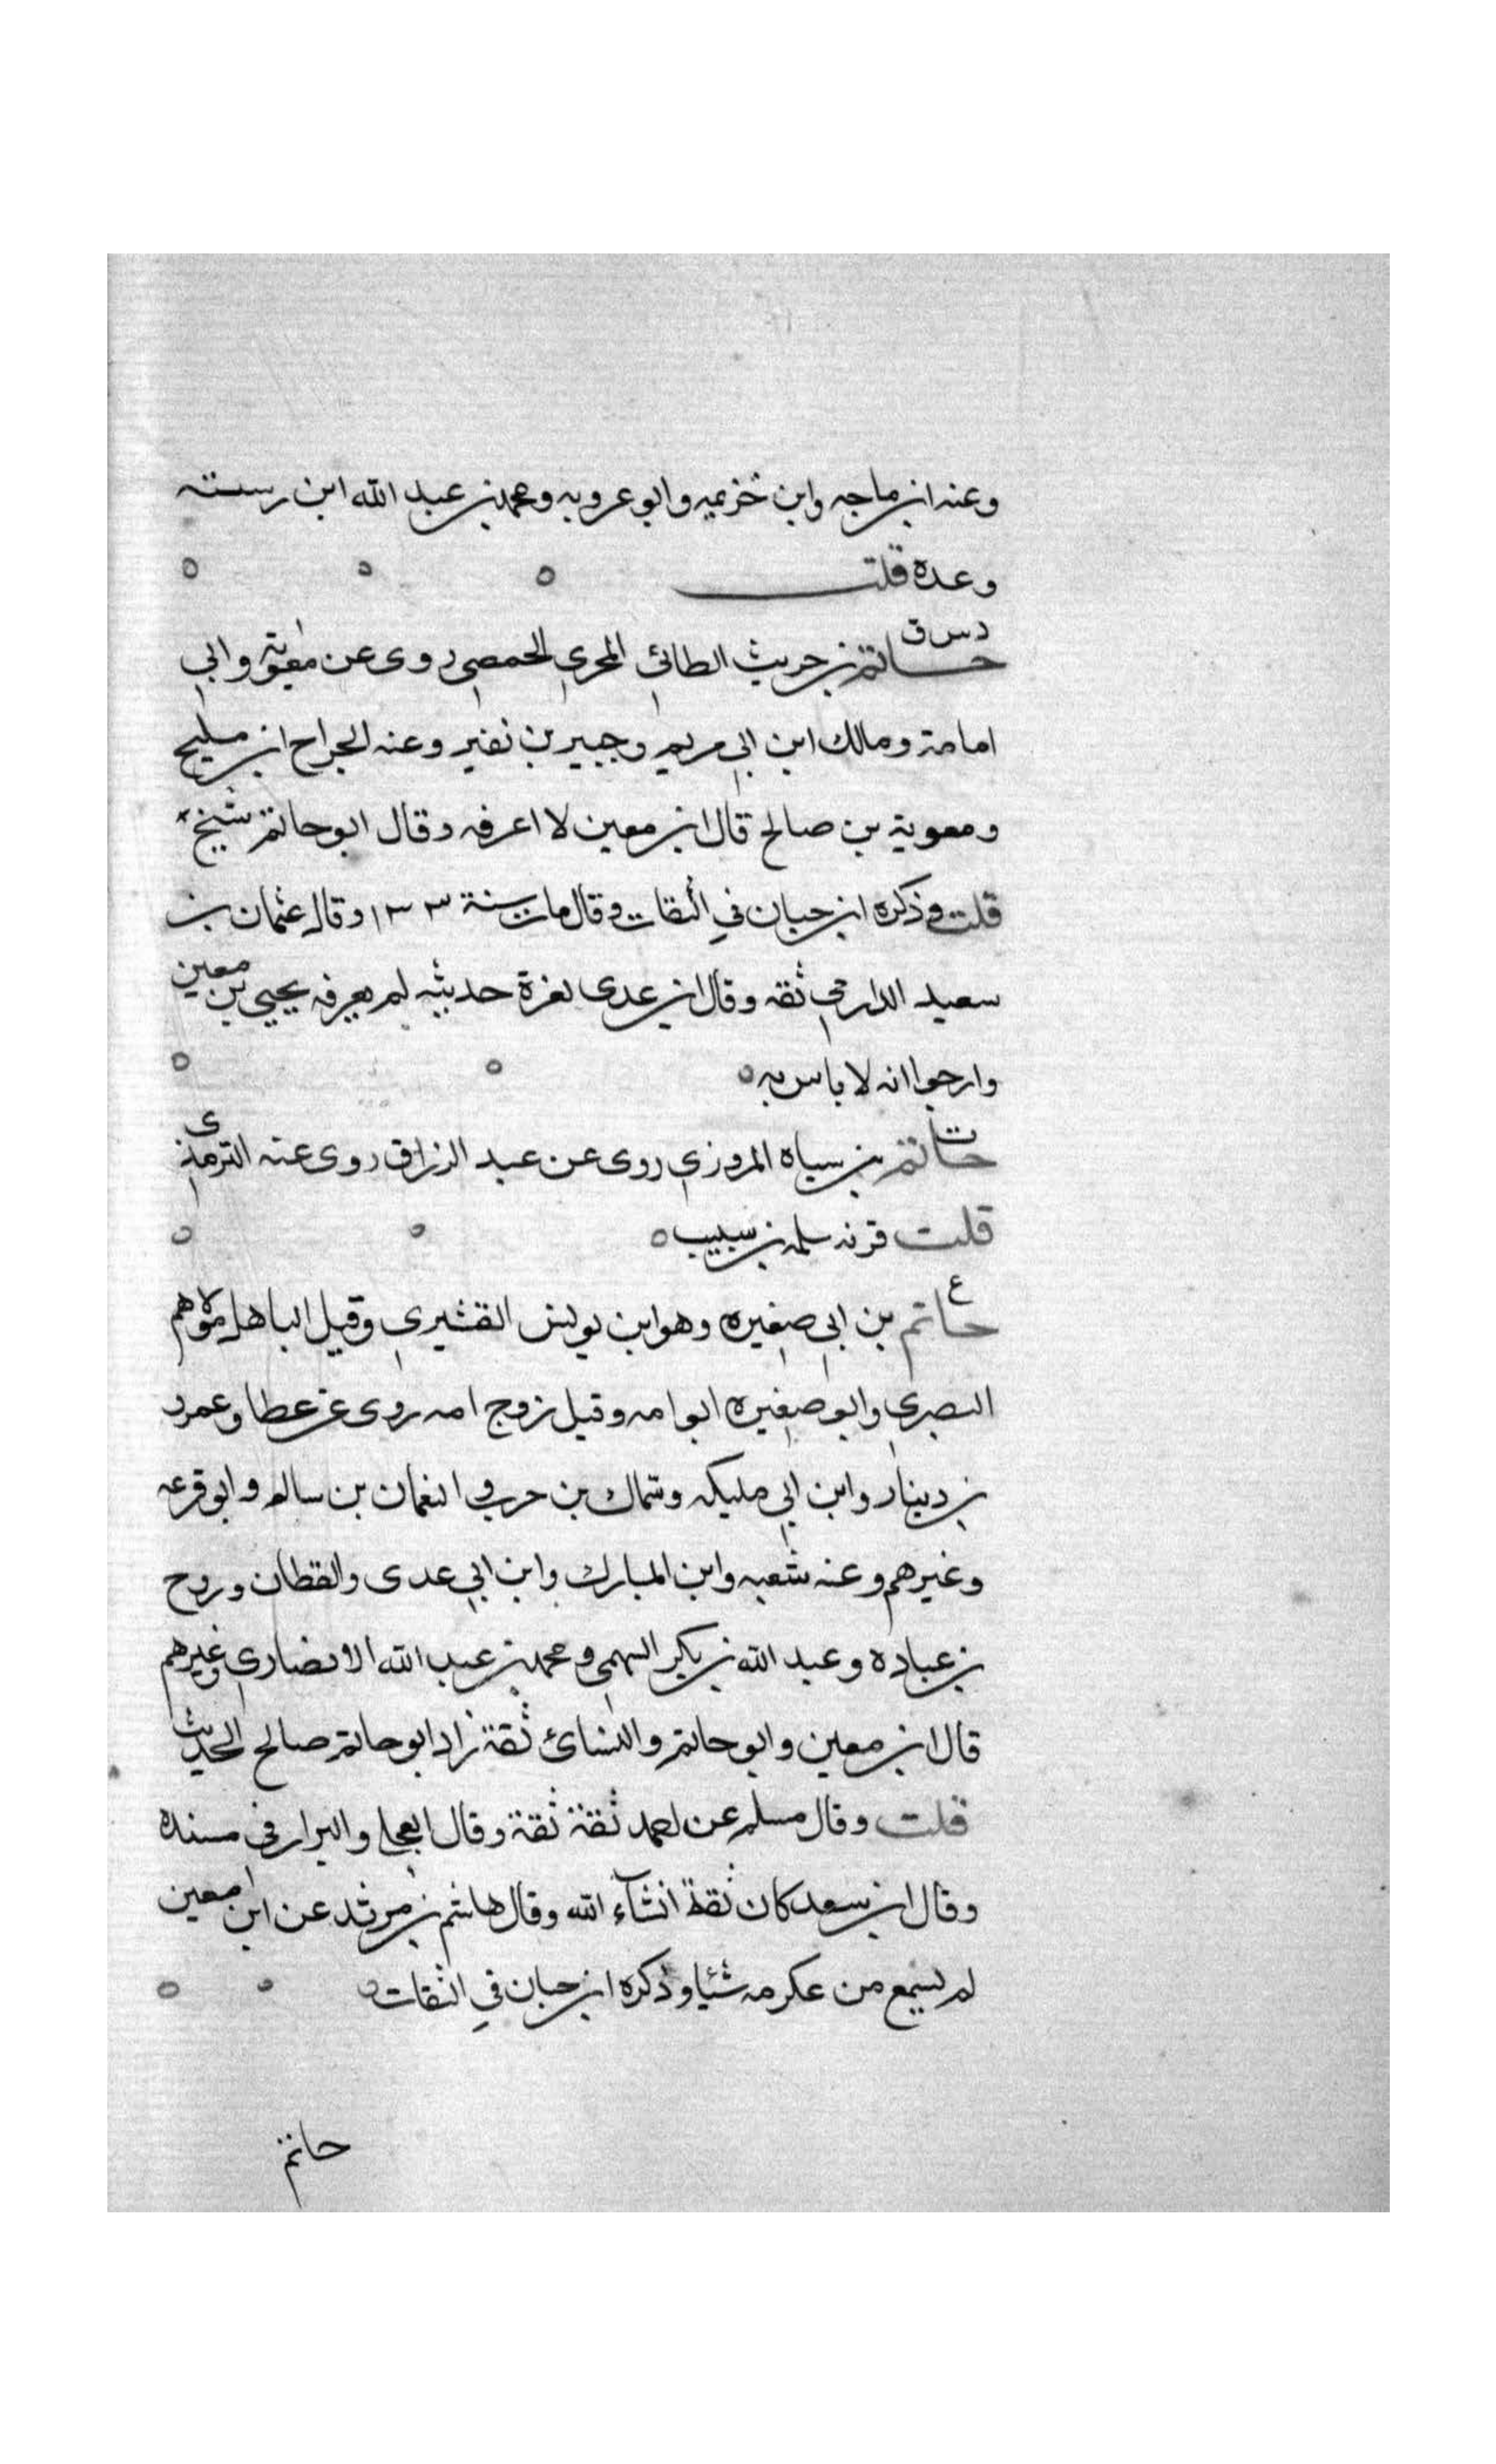 وعنه ابن ماجه وابن خزيمه وابو عروبه ومحمد بن عبد الله ابن رسته
وعده قلت
د س ق
حاتم بن حريث الطائي المحري الحمصي روى عن معوية وابي
امامة ومالك ابن ابي مريم وجبير بن نفير وعنه الجراح ابن مليح
ومعوية بن صالح قال ابن معين لا اعرفه وقال ابو حاتم شيخ
قلت وذكره ابن حبان في الثقات وقال مات سنة ١٣٣ وقال عثمان بن
سعيد الدارمي ثقه وقال ابن عدى لعزة حديثه لم يعرفه يحيى بن معين
وارجوا انه لا باس به
ت
حاتم بن سياه المروزي روى عن عبد الرزاق روى عنه الترمذى
قلت قرنه سلمه بن شبيب
ع
حاتم بن ابي صغيره وهو ابن يونس القشيري وقيل الباهلي مولاهم
البصري وابو صغيره ابو امه وقيل زوج امه روى عن عطا وعمرو
بن دينار وابن ابي مليكه وسماك بن حرب والنعمان بن سالم وابو قزعه
وغيرهم وعنه شعبه وابن المبارك وابن ابي عدى والقطان وروح
بن عباده وعبد الله بن بكير السهمي ومحمد بن عبد الله الانصاري وغيرهم
قال ابن معين وابو حاتم والنسائ ثقة زاد ابو حاتم صالح الحديث
قلت وقال مسلم عن احمد ثقة ثقة وقال العجلي والبزار في مسنده
وقال ابن سعد كان ثقة انشآء الله وقال هاشم بن مرثد عن ابن معين
لم يسمع من عكرمه شئيا وذكره ابن حبان في الثقات
حاتم